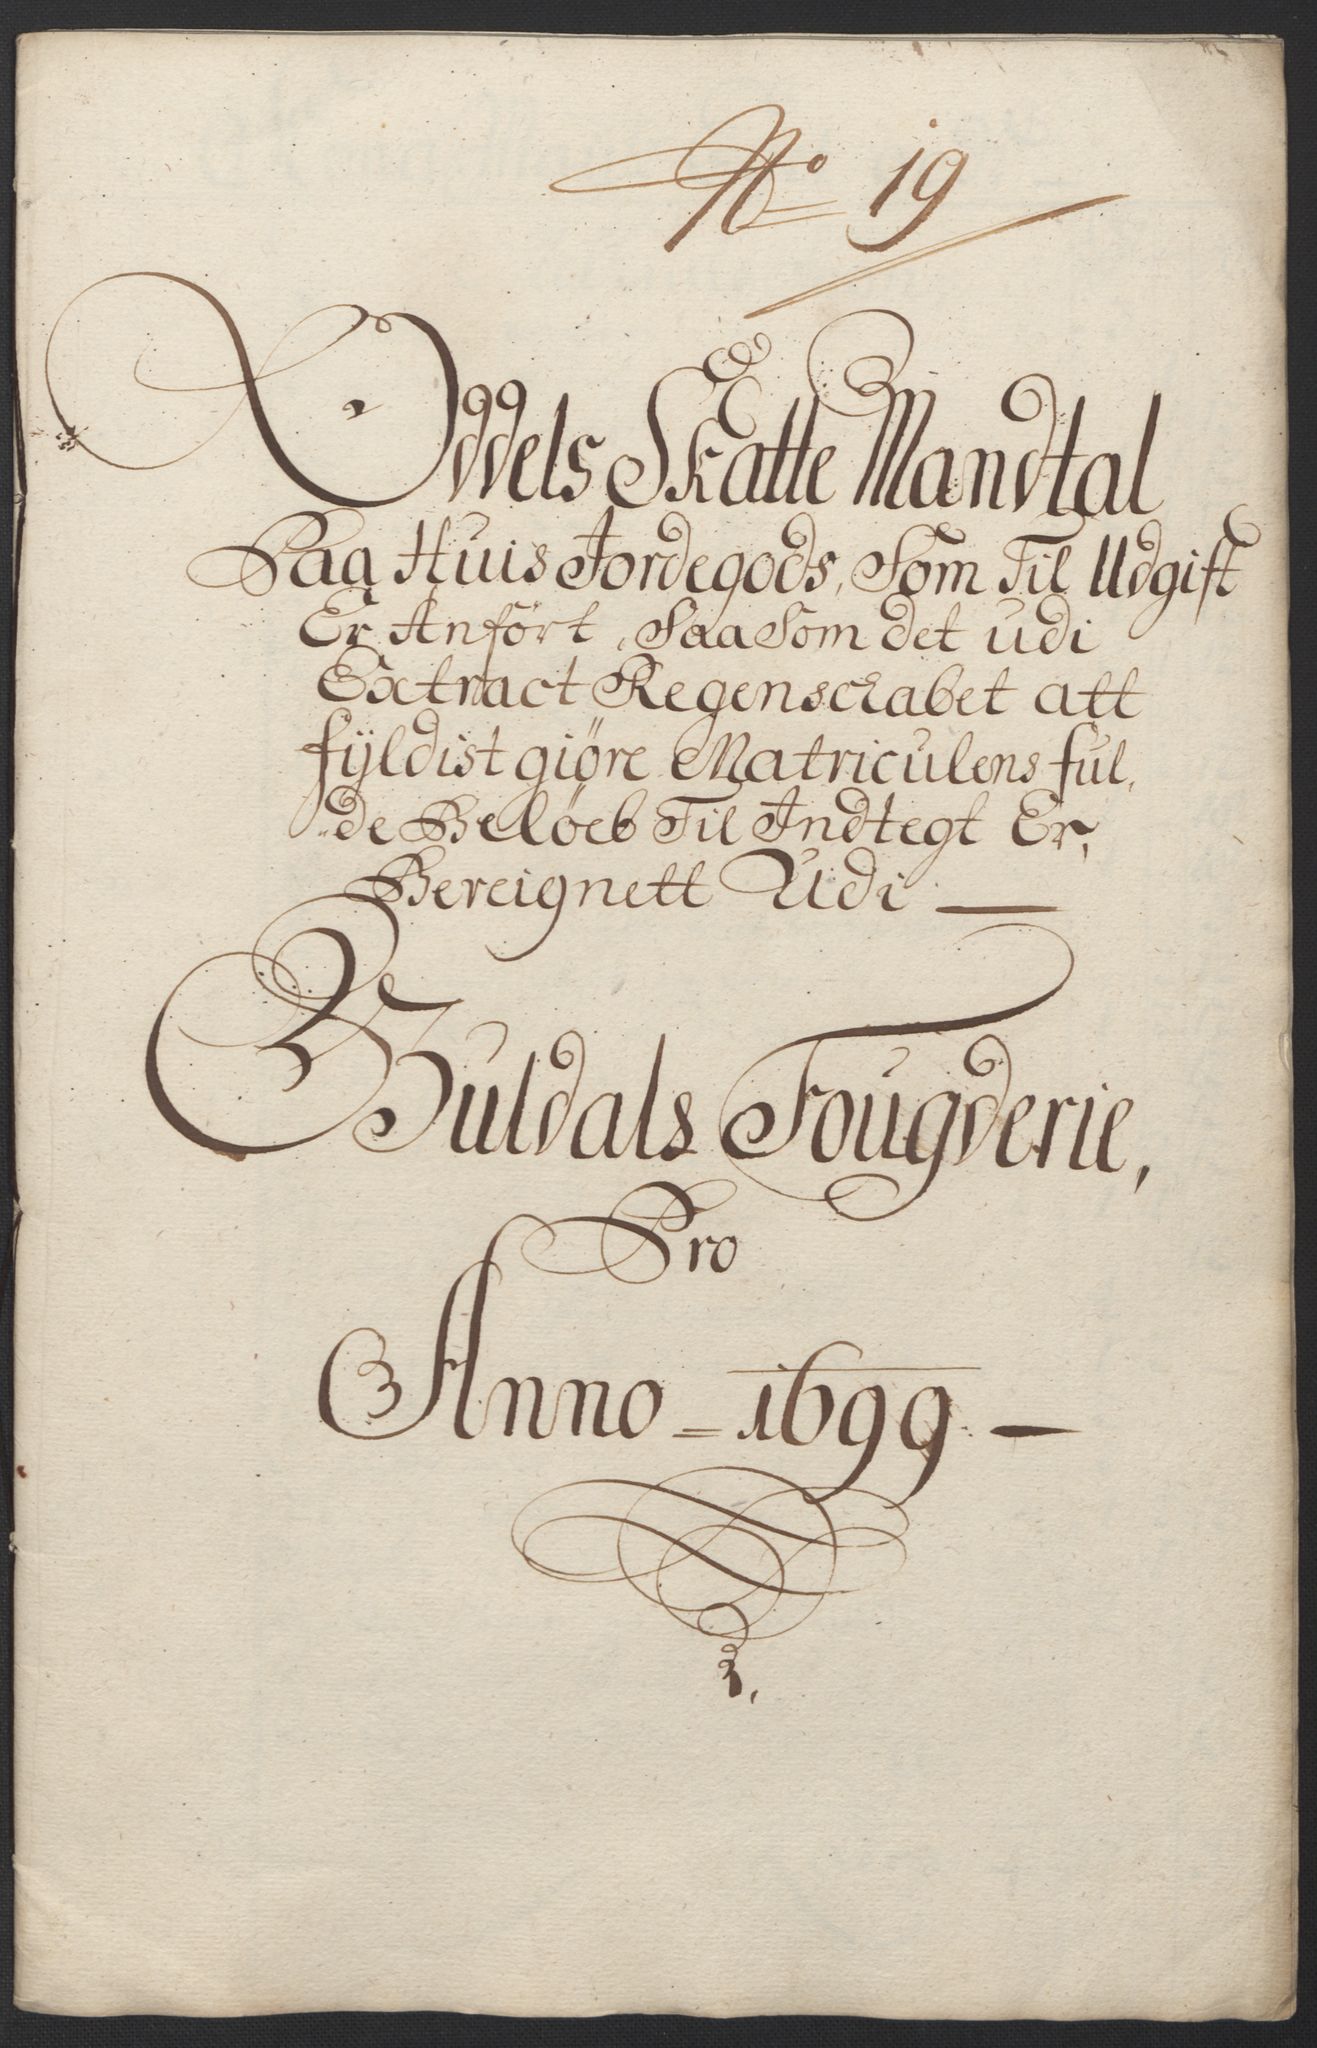 No 19
Oddels Skatte Mandtal
Paa Huis Jordegods, Som Til Udgift
Er Anført, Saa Som det udi
Extract Regenschabet att
fÿldist giøre Matriculens ful,
de Beløeb Til Indtegt Er,
Bereignett Udi —
Guldals Fougderie,
Pro
Anno = 1699 —